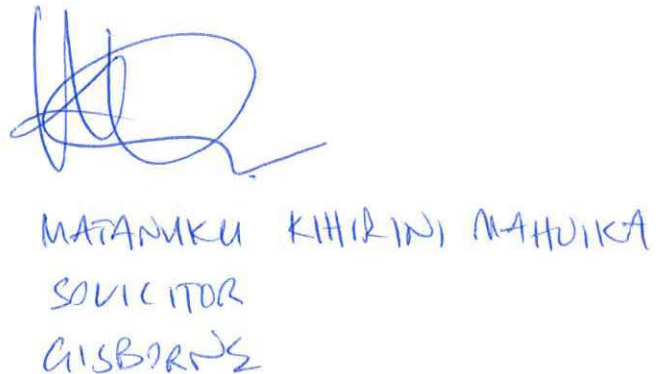 MATANUKU KIHIRINI MAHUIKA
SOLICITOR
GISBORNE